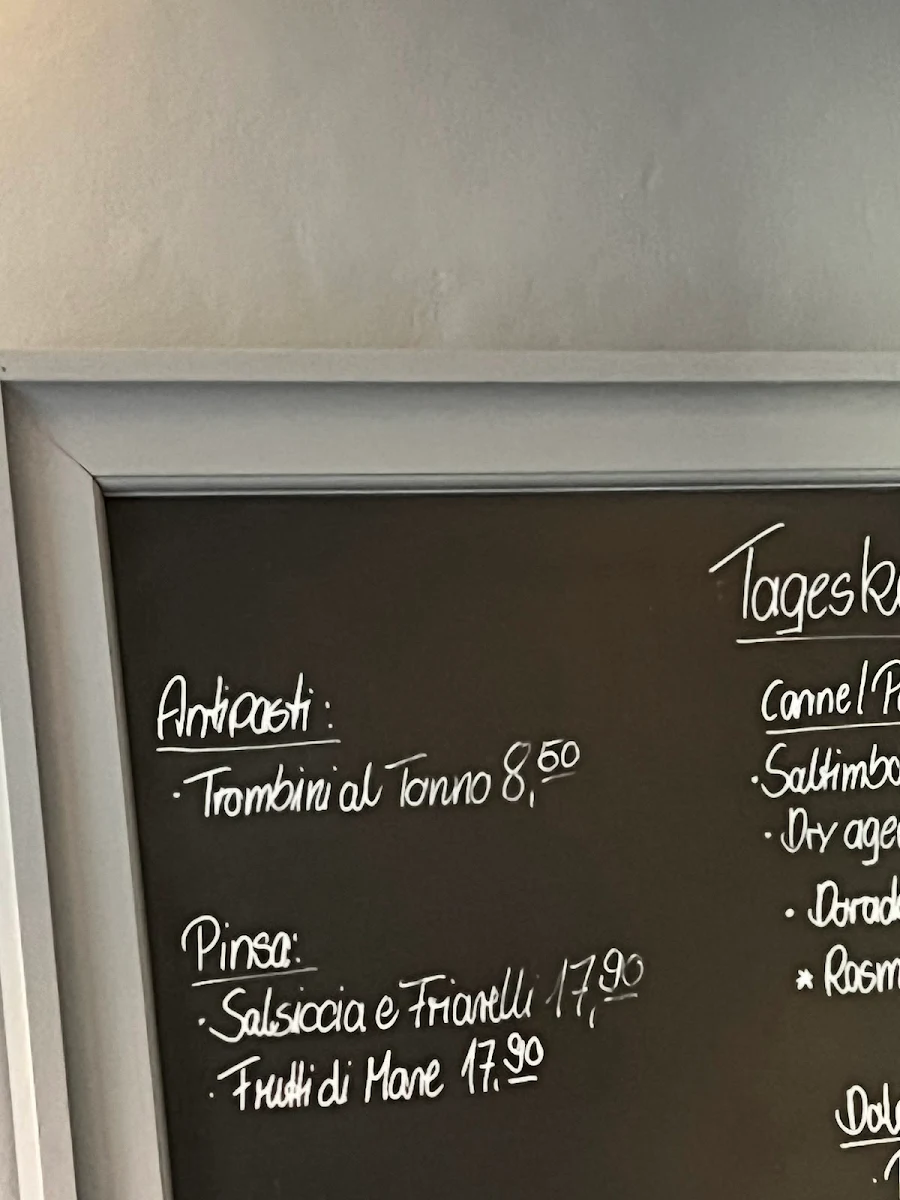 Tageska
Antipasti:
· Trombini al Tonno 8,50
Pinsa:
· Salsiccia e Friarelli 17,90
· Frutti di Mare 17,90
Carne/P
· Saltimbo
· Dry age
· Dorad
* Rosm
Dol